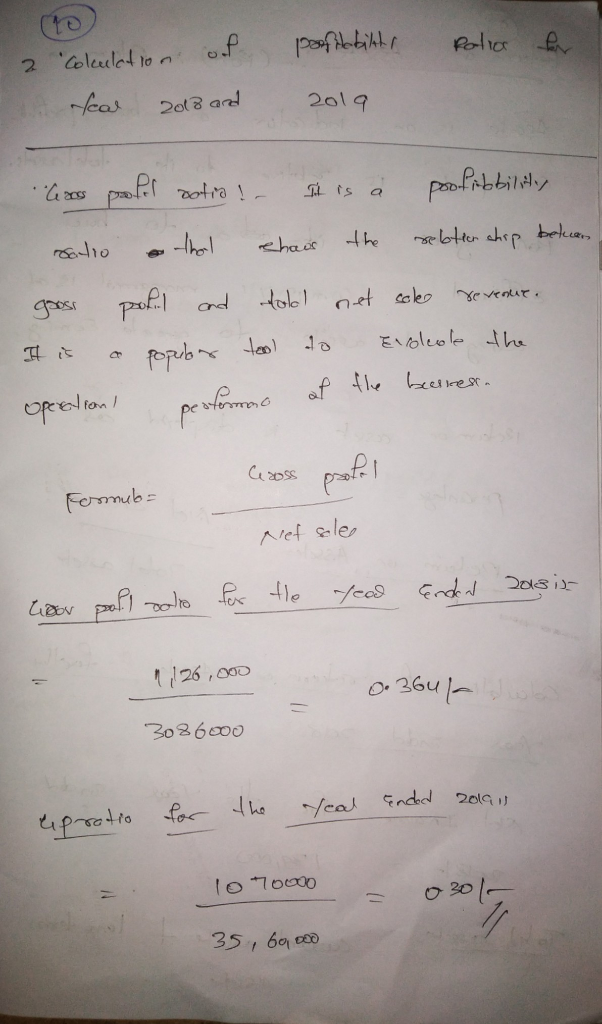 10
2 Calculation of profitability Ratios for
Year 2018 and 2019
Gross profit ratio :- It is a profitability
ratio that shows the relationship between
gross profit and total net sales revenue.
It is a popular tool to Evaluate the
operational performance of the business.
Formula = Gross profit
Net sales
Gross profit ratio for the Year Ended 2018 is:-
= 1,126,000
3086000
= 0.364/-
Gp ratio for the Year Ended 2019 is
= 1070000
35,60,000
= 0.30/-